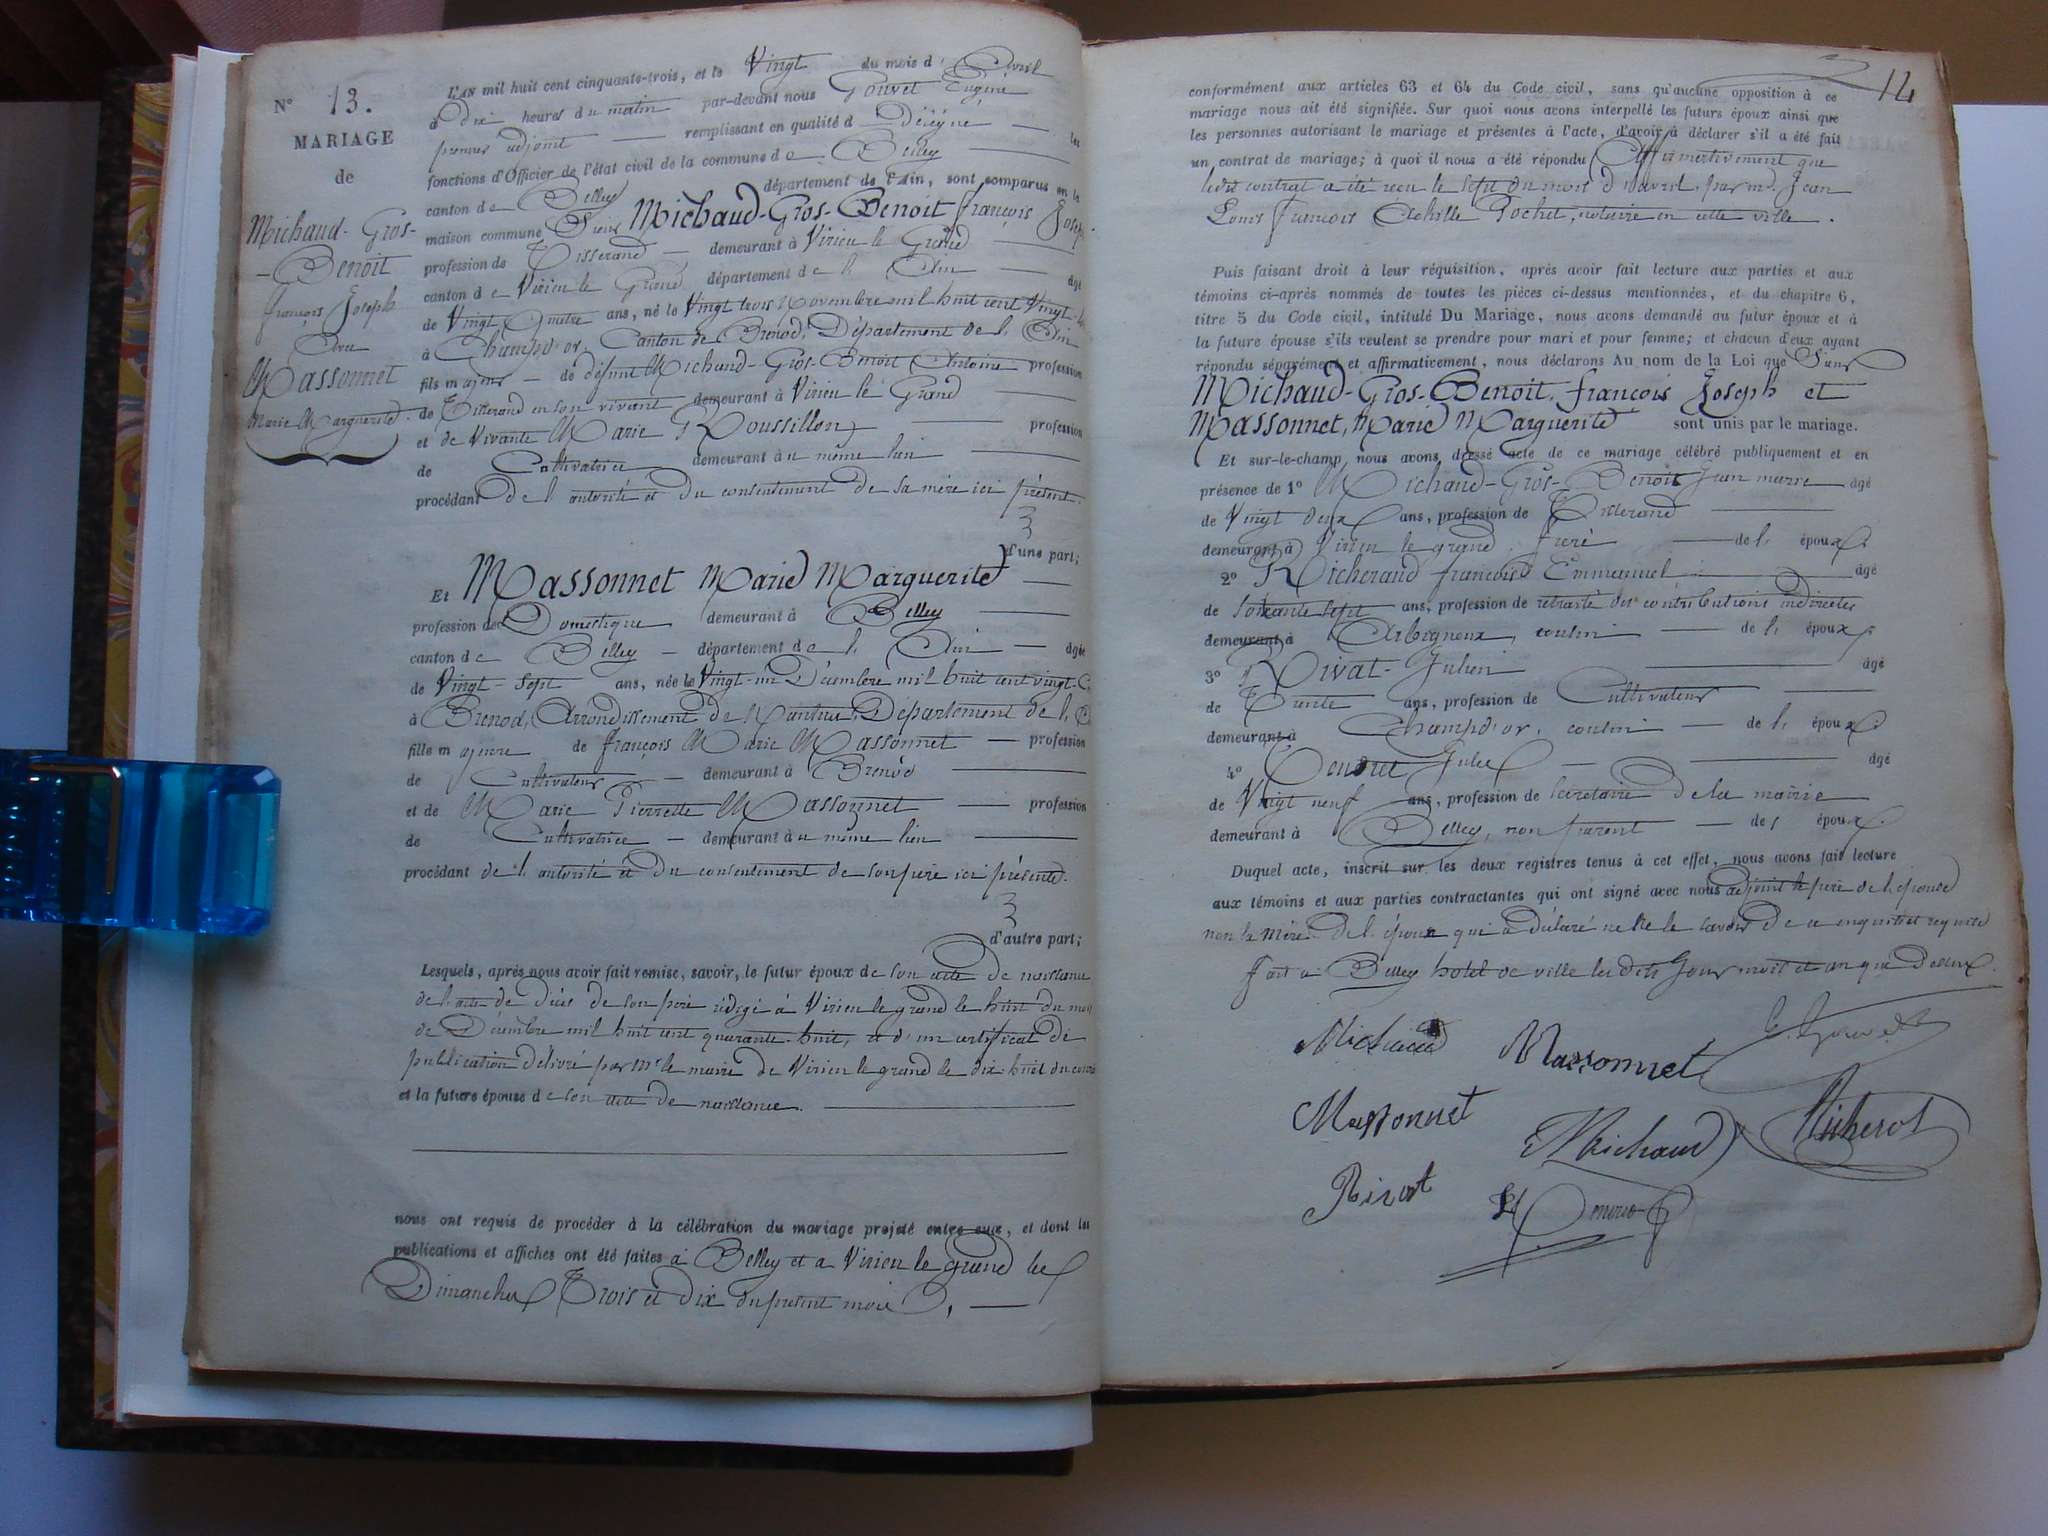 N° 13.
MARIAGE
de
Michaud-Gros-
-Benoit
françois Joseph
Avec
Massonnet
Marie Marguerite.
L'AN mil huit cent cinquante-trois, et le Vingt du mois d'Avril
à Dix heures du matin par-devant nous Gouvet Eugène
premier adjoint remplissant en qualité de Désigné les
fonctions d'Officier de l'état civil de la commune de Belley
canton de Belley département de l'Ain, sont comparus en la
maison commune Sieur Michaud-Gros-Benoit françois Joseph
profession de Tisserand demeurant à Virieu le Grand
canton de Virieu le Grand département de l'Ain âgé
de Vingt Quatre ans, né le Vingt trois Novembre mil huit cent Vingt-
à Champd'or, Canton de Brenod, Département de l'Ain
fils majeur de défunt Michaud-Gros-Benoit Antoine profession
de Tisserand en son vivant demeurant à Virieu le Grand
et de Vivante Marie Roussillon profession
de Cultivatrice demeurant au même lieu
procédant de l'autorité et du consentement de sa mère ici présent.
d'une part;
Et Massonnet Marie Marguerite
profession de Domestique demeurant à Belley
canton de Belley département de l'Ain âgée
de Vingt-sept ans, née le Vingt-un Décembre mil huit cent vingt-
à Brenod, Arrondissement de Nantua, Département de l'
fille majeure de françois Marie Massonnet profession
de Cultivateur demeurant à Brenod
et de Marie Pierrette Massonnet profession
de Cultivatrice demeurant au même lieu
procédant de l'autorité et du consentement de son père ici présent.
d'autre part;
Lesquels, après nous avoir fait remise, savoir, le futur époux de son acte de naissance
de l'acte de décès de son père rédigé à Virieu le grand le huit du mois
de Décembre mil huit cent quarante-huit, et d'un certificat de
publication délivré par Mr le maire de Virieu le grand le dix-huit du
et la future épouse de son acte de naissance.
nous ont requis de procéder à la célébration du mariage projeté entre eux, et dont les
publications et affiches ont été faites à Belley et à Virieu le grand les
Dimanches Trois et dix du présent mois,
14
conformément aux articles 63 et 64 du Code civil, sans qu'aucune opposition à ce
mariage nous ait été signifiée. Sur quoi nous avons interpellé les futurs époux ainsi que
les personnes autorisant le mariage et présentes à l'acte, d'avoir à déclarer s'il a été fait
un contrat de mariage; à quoi il nous a été répondu Affirmativement que
ledit contrat a été reçu le sept du mois d'avril, par me. Jean
Louis françois Achille Pochet, notaire en cette ville.
Puis faisant droit à leur réquisition, après avoir fait lecture aux parties et aux
témoins ci-après nommés de toutes les pièces ci-dessus mentionnées, et du chapitre 6,
titre 5 du Code civil, intitulé Du Mariage, nous avons demandé au futur époux et à
la future épouse s'ils veulent se prendre pour mari et pour femme; et chacun d'eux ayant
répondu séparément et affirmativement, nous déclarons Au nom de la Loi que Sieur
Michaud-Gros-Benoit, françois Joseph et
Massonnet, Marie Marguerite sont unis par le mariage.
Et sur-le-champ nous avons dressé acte de ce mariage célébré publiquement et en
présence de 1° Michaud-Gros-Benoit Jean marie âgé
de Vingt deux ans, profession de Tisserand
demeurant à Virieu le grand, frère de l'époux.
2° Richerand françois Emmanuel âgé
de soixante sept ans, profession de retraité des contributions indirectes
demeurant à Arbignieux, cousin de l'époux.
3° Rivat Julien âgé
de Trente ans, profession de Cultivateur
demeurant à Champd'or, cousin de l'époux.
4° Jules âgé
de Vingt neuf ans, profession de secrétaire de la mairie
demeurant à Belley, non parent des époux.
Duquel acte, inscrit sur les deux registres tenus à cet effet, nous avons fait lecture
aux témoins et aux parties contractantes qui ont signé avec nous adjoint le père de l'épouse
non la mère de l'époux qui a déclaré ne le savoir de ce enquise et requise
fait à Belley hotel de ville les dits jour mois et an que dessus.
Michaud Massonnet E. Gouvet
Massonnet Michaud
Rivat